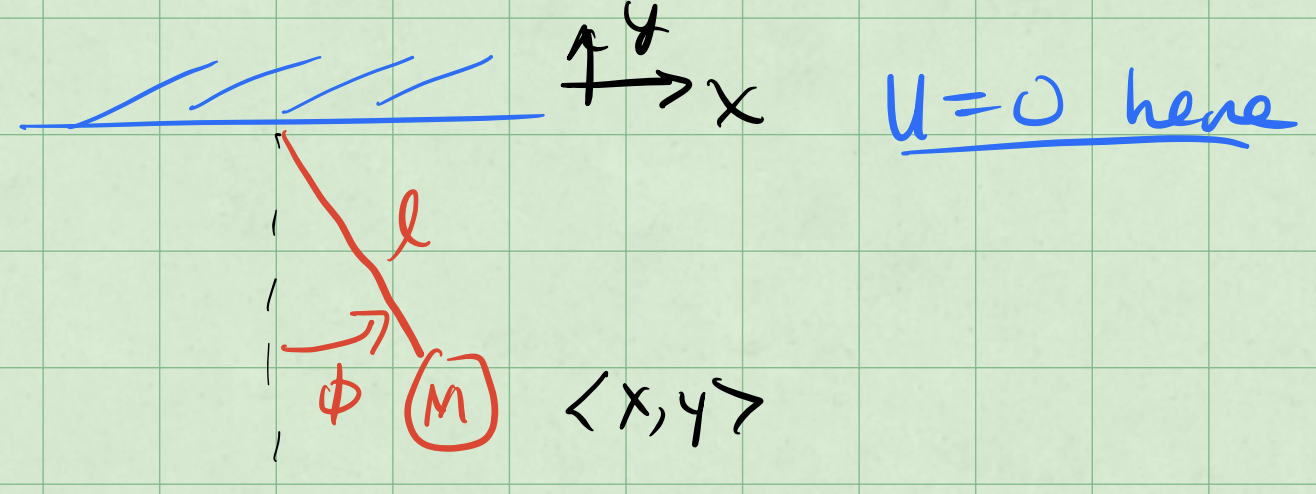 y
x
U=0 here
l
ϕ
M
<x,y>